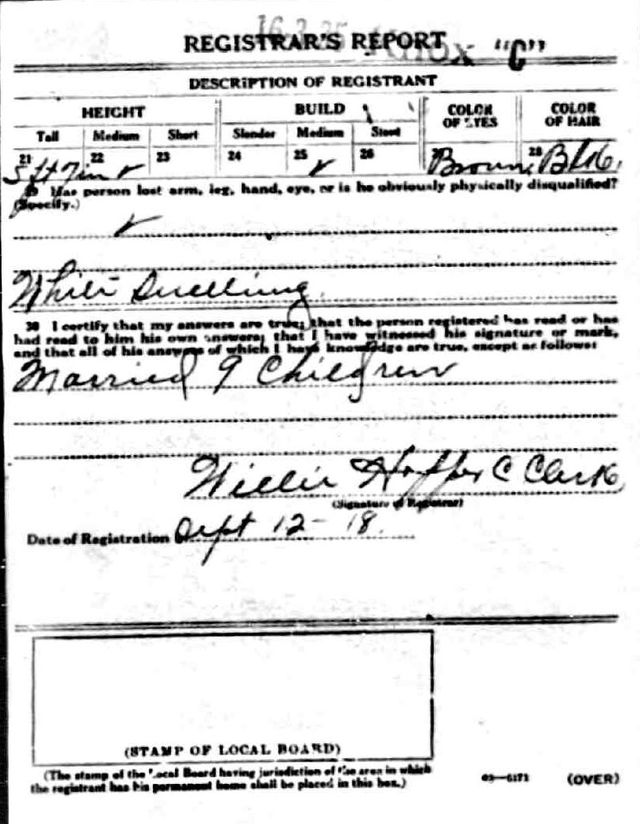 16-3-25 Knox "C"
REGISTRAR'S REPORT
DESCRIPTION OF REGISTRANT
HEIGHT BUILD COLOR OF EYES COLOR OF HAIR
Tall Medium Short Slender Medium Stout
21 22 23 24 25 26 27 28
5 ft 7 in ✓ ✓ Brown Blk
29 Has person lost arm, leg, hand, eye, or is he obviously physically disqualified?
(Specify.)
✓
White Swelling
30 I certify that my answers are true; that the person registered has read or has
had read to him his own answers; that I have witnessed his signature or mark,
and that all of his answers of which I have knowledge are true, except as follows:
Married 9 Children
Willie C Clerk
(Signature of Registrar)
Date of Registration Sept 12-18
(STAMP OF LOCAL BOARD)
(The stamp of the Local Board having jurisdiction of the area in which
the registrant has his permanent home shall be placed in this box.)
03—6171 (OVER)